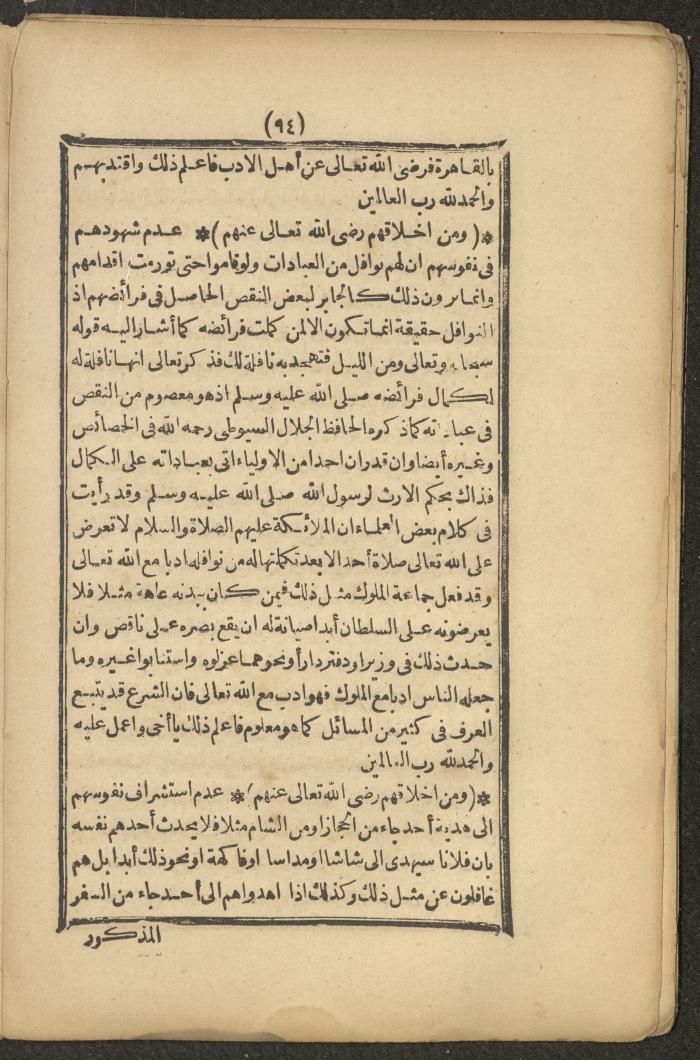 (٩٤)
بالقاهرة فرضى الله تعالى عن أهل الادب فاعلم ذلك واقتد بهم
والحمد لله رب العالمين
*(ومن اخلاقهم رضى الله تعالى عنهم)* عدم شهودهم
فى نفوسهم ان لهم نوافل من العبادات ولو قاموا حتى تورمت اقدامهم
وانما يرون ذلك كالجابر لبعض النقص الحاصل فى فرائضهم اذ
النوافل حقيقة انما تكون الا لمن كملت فرائضه كما أشار اليه قوله
سبحانه وتعالى ومن الليل فتهجد به نافلة لك فذكر تعالى انها نافلة له
لكمال فرائضه صلى الله عليه وسلم اذ هو معصوم من النقص
فى عباداته كما ذكره الحافظ الجلال السيوطى رحمه الله فى الخصائص
وغيره أيضا وان قدر ان احدا من الاولياء اتى بعباداته على الكمال
فذاك بحكم الارث لرسول الله صلى الله عليه وسلم وقد رأيت
فى كلام بعض العلماء ان الملائكة عليهم الصلاة والسلام لا تعرض
على الله تعالى صلاة أحد الا بعد تكملتها له من نوافله ادبا مع الله تعالى
وقد فعل جماعة الملوك مثل ذلك فيمن كان ببدنه عاهة مثلا فلا
يعرضونه على السلطان أبدا صيانة له ان يقع بصره على ناقص وان
حدث ذلك فى وزير او دفتر دار أو نحوهما عزلوه واستنابوا غيره وما
جعله الناس ادبا مع الملوك فهو ادب مع الله تعالى فان الشرع قد يتبع
العرف فى كثير من المسائل كما هو معلوم فاعلم ذلك يا أخى واعمل عليه
والحمد لله رب العالمين
*(ومن اخلاقهم رضى الله تعالى عنهم)* عدم استشراف نفوسهم
الى هدية أحد جاء من الحجاز او من الشام مثلا فلا يحدث أحدهم نفسه
بان فلانا سيهدى الى شاشا او مداسا او فاكهة او نحو ذلك أبدا بل هم
غافلون عن مثل ذلك وكذلك اذا اهدوا هم الى أحد جاء من السفر
المذكور